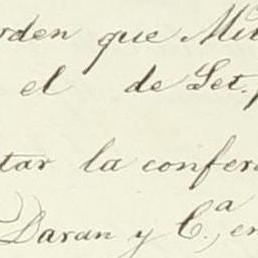 orden que Mit
el de Set.
tar la confer
Daran y C.ª, en